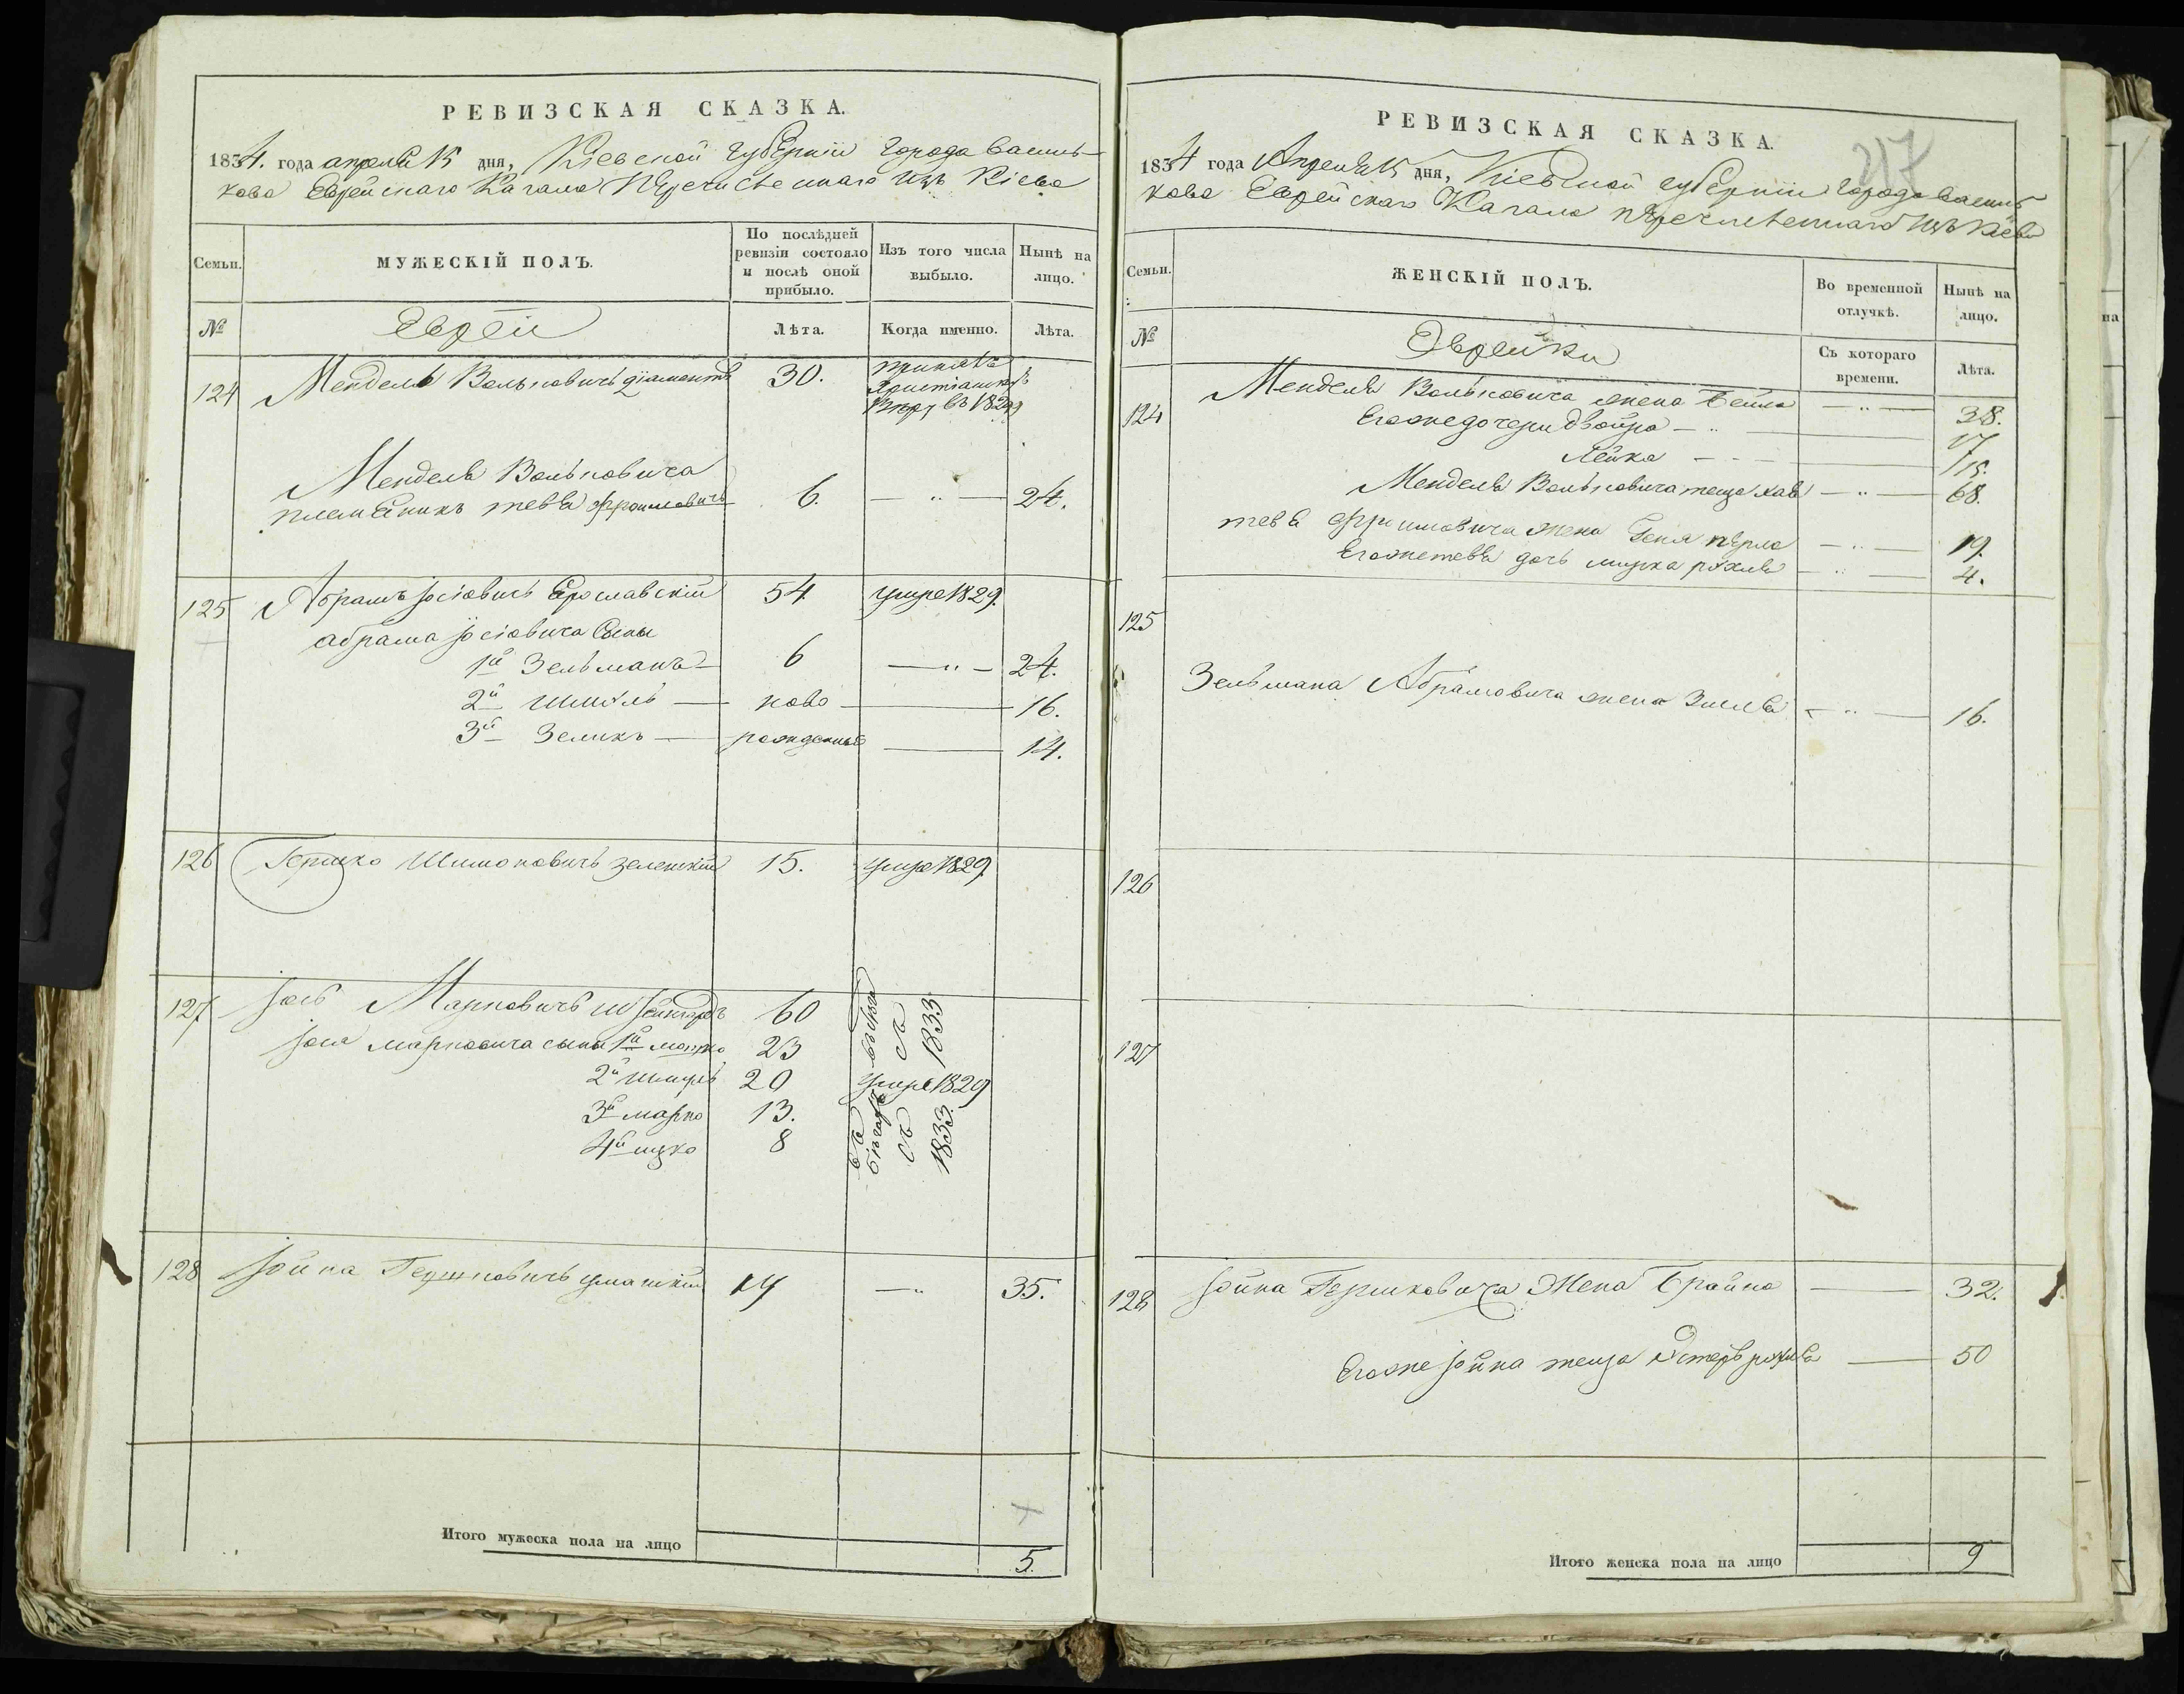 РЕВИЗСКАЯ СКАЗКА.
1834. года апреля 15 дня, Кіевской губерніи города Василь-
кова Еврейскаго Кагала Перечисленнаго изъ Кіева
Семьи.
МУЖЕСКІЙ ПОЛЪ.
По послѣдней ревизіи состояло и послѣ оной прибыло.
Изъ того числа выбыло.
Нынѣ на лицо.
№
Евреи
Лѣта.
Когда именно.
Лѣта.
124 Мендель Вольковичъ Діаментъ 30. принялъ
Христіанскую
Веру въ 1829
Мендель Вольковича
племеникъ тевель Фроимовичъ 6. — " — 24.
125 Абрамъ Іосіовичь Ерославскій 54 умре 1829.
абрама Іосіовича Сыны
1й Зельманъ 6 — " — 24.
2й Шмиль — ново — 16.
3й Зеликъ — рожденые — 14.
126 Гершко Шимоновичъ Зеленскій 15. умре 1829.
127 Іось Марковичъ 60
Іося марковича сыны 1й мошко 23
1833
2й шмуль 20 умре 1829
3й марко 13.
4й ицко 8
въ бѣгахъ
съ
1833.
128 Іойна Гершковичъ уманскій 19 — " 35.
Итого мужеска пола на лицо 5.
РЕВИЗСКАЯ СКАЗКА.
217
1834 года Апреля 15 дня, Кіевской губерніи города Василь
кова Еврейскаго Кагала перечисленнаго изъ Кіева
Семьи.
ЖЕНСКІЙ ПОЛЪ.
Во временной отлучкѣ.
Нынѣ на лицо.
№
Еврейки
Съ котораго времени.
Лѣта.
124 Мендель Вольковича жена Бейла — " — 38.
Егожедочери Двойра — " — 17
Лейка — 15.
Мендель Вольковича теща хава — " — 68.
тевель Фроимовича жена Геня перла — " — 19.
Егожетевель дочь мирка рухля — " — 4.
125
Зельмана Абрамовича жена Зисля — " — 16.
126
127
128 Іойна Гершковича Жена Брайна — 32.
Егоже Іойна теща Эстеръ рухля — 50
Итого женска пола на лицо 9